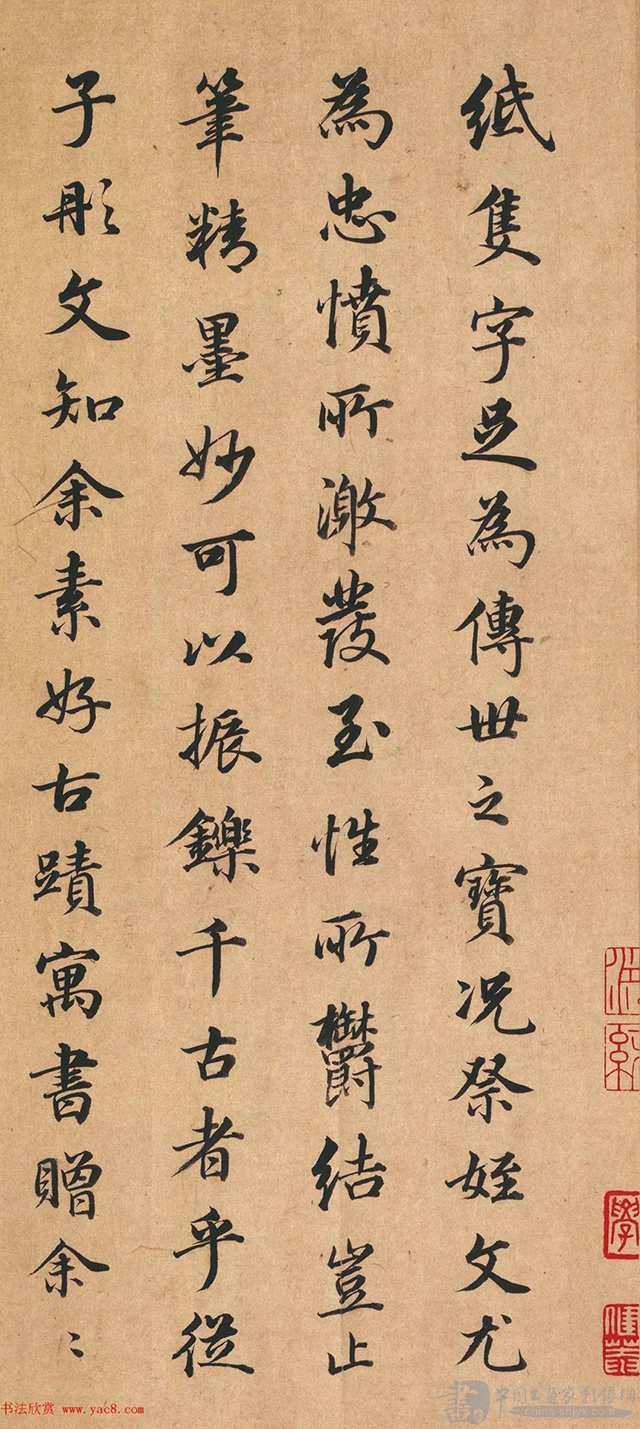 紙隻字足為傳世之寶况祭姪文尤
為忠憤所激發至性所欝結豈止
筆精墨妙可以振鑠千古者乎從
子彤文知余素好古蹟寓書贈余〻
书法欣赏 www.yac8.com